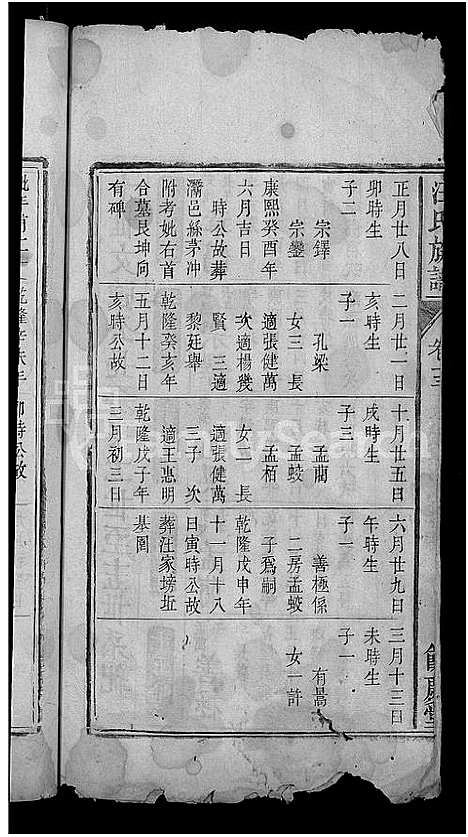 汪氏族譜
卷三
餘慶堂
正月廿八日
卯時生
子二
宗鐸
宗鑾
康熙癸酉年
六月吉日
時公故葬
灊邑絲茅沖
附考妣右首
合墓艮坤向
有碑
二月廿一日
亥時生
子一
孔梁
女三 長
適張健萬
次適楊幾
賢 三適
黎廷舉
乾隆癸亥年
五月十二日
亥時公故
十月廿五日
戌時生
子三
孟藺
孟蛟
孟栢
女二 長
適張健萬
三子 次
適王惠明
乾隆戊子年
三月初三日
六月廿九日
午時生
子一
善極係
二房孟蛟
子爲嗣
乾隆戊申年
十一月十八
日寅時公故
葬汪家塝坵
墓圍
三月十三日
未時生
子一
有暠
女一許